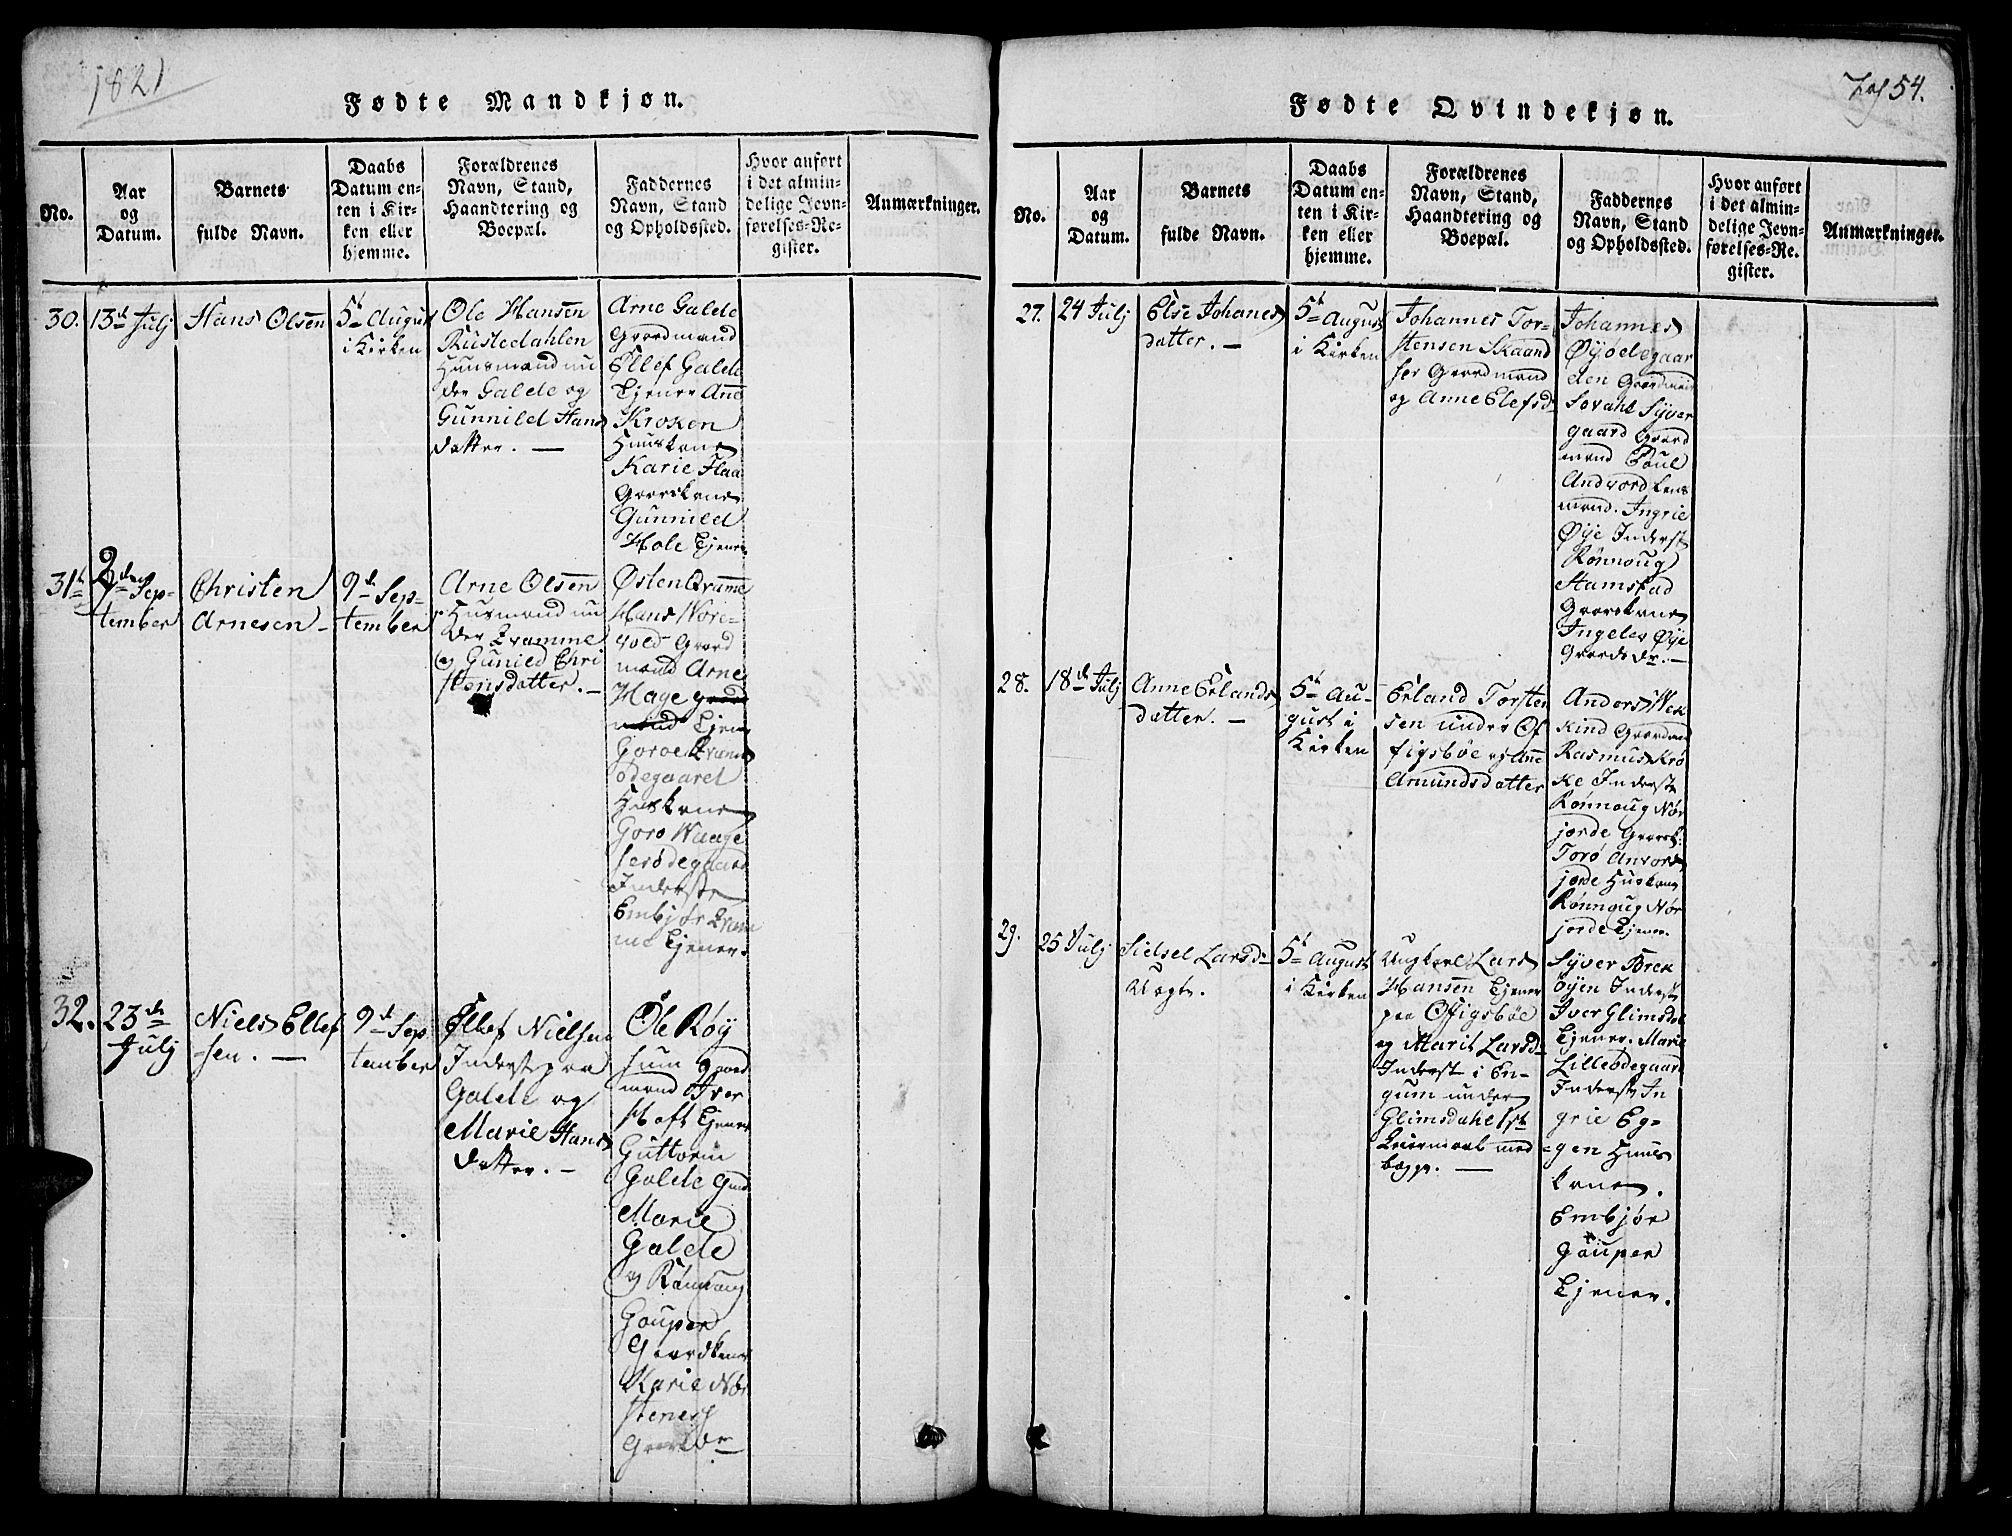 1821
Fødte Mandkjøn.
No.
Aar
og
Datum.
Barnets
fulde Navn.
Daabs
Datum en-
ten i Kir-
ken eller
hjemme.
Forældrenes
Navn, Stand,
Haandtering og
Boepæl.
Faddernes
Navn, Stand
og Opholdssted.
Hvor anført
i det almin-
delige Jevn-
førelses-Re-
gister.
Anmærkninger.
30.
13de Julj
Hans Olsen
5te August
i Kirken
Ole Hansen
Rustedahlen
Huusmand un
der Galde og
Gunnild Hans
datter. —
Arne Galde
Gaardmand
Ellef Galde
Tjener Ane
Kroken
Huuskone
Karie Flaa
Gaardkone
Gunnild
Hole Tjener.
31te
2den Sep-
tember
Christen
Arnesen -
9de Sep-
tember
Arne Olsen
Husmand un
der Qvamme
og Gunild Chri
stensdatter. -
Østen Qvame
Hans Nore-
vold Gaard
mand Arne
Hage gaard
mand Tjener
Goroe Qvam
ødegaaret
Huskone
Goro Waage
ødegaard
Inderste
Embjør Qvam
me Tjener.
32.
23de
Julj
Niels Ellef
sen. —
9de Sep
tember
Ellef Nielsen
Inderst paa
Galde og
Marie Hans
datter. -
Ole Røy
sum gaard
mand Iver
Hoft Tjener
Guttorm
Galde Gmd
Marie
Galde
og Rønnoug
Gouper
Gaardkoner
Karie Nør
stenes
Gaardk
Fødte Qvindekjøn.
54.
No.
Aar
og
Datum.
Barnets
fulde Navn.
Daabs
Datum en-
ten i Kir-
ken eller
hjemme.
Forældrenes
Navn, Stand,
Haandtering og
Boepæl.
Faddernes
Navn, Stand
og Opholdssted.
Hvor anført
i det almin-
delige Jevn-
førelses-Re-
gister.
Anmærkninger.
27.
24 Julj
Else Johanes
datter. -
5te August
i Kirken
Johannes Tor-
stensen Skaand
ser Gaardmand
og Anne Elefsd
Johannes
Øyødegaar
den Gaardman
Sovald Syver
gaard Gaard
mand Poul
Andvord Lens
mand. Ingrie
Øye Inderst
Rønnoug
Stamstad
Gaardkone
Ingeler Øye
Gaards dr. -
28.
18de Julj
Anne Erlands
datter. -
5te Au-
gust i
Kirken
Erland Torsten
sen under Of
figsbøe og Ane
Amundsdatter
Anders Wek
kind Gaardmand
Rasmus Krø
ke Inderste
Rønnoug Nør
jorde Gaardk.
Torø Anvord
jorde Huskone
Rønnoug Nør
jorde Tjener.
29.
25 Julj
Sidsel Larsd
Uægte.
5te August
i Kirken
Ungkarl Lars
Hansen Tjener
paa Ofigsbøe
og Marit Larsd
Inderst i En-
gum under
Glimsdahl 1ste
Leiermaal med
begge. —
Syver Brek
øyen Inderst
Iver Glimsdal
Tjener. Marie
Lilleødegaard
Inderst In
grie Eg-
gen Huus
kone.
Embjør
Gouper
Tjener.